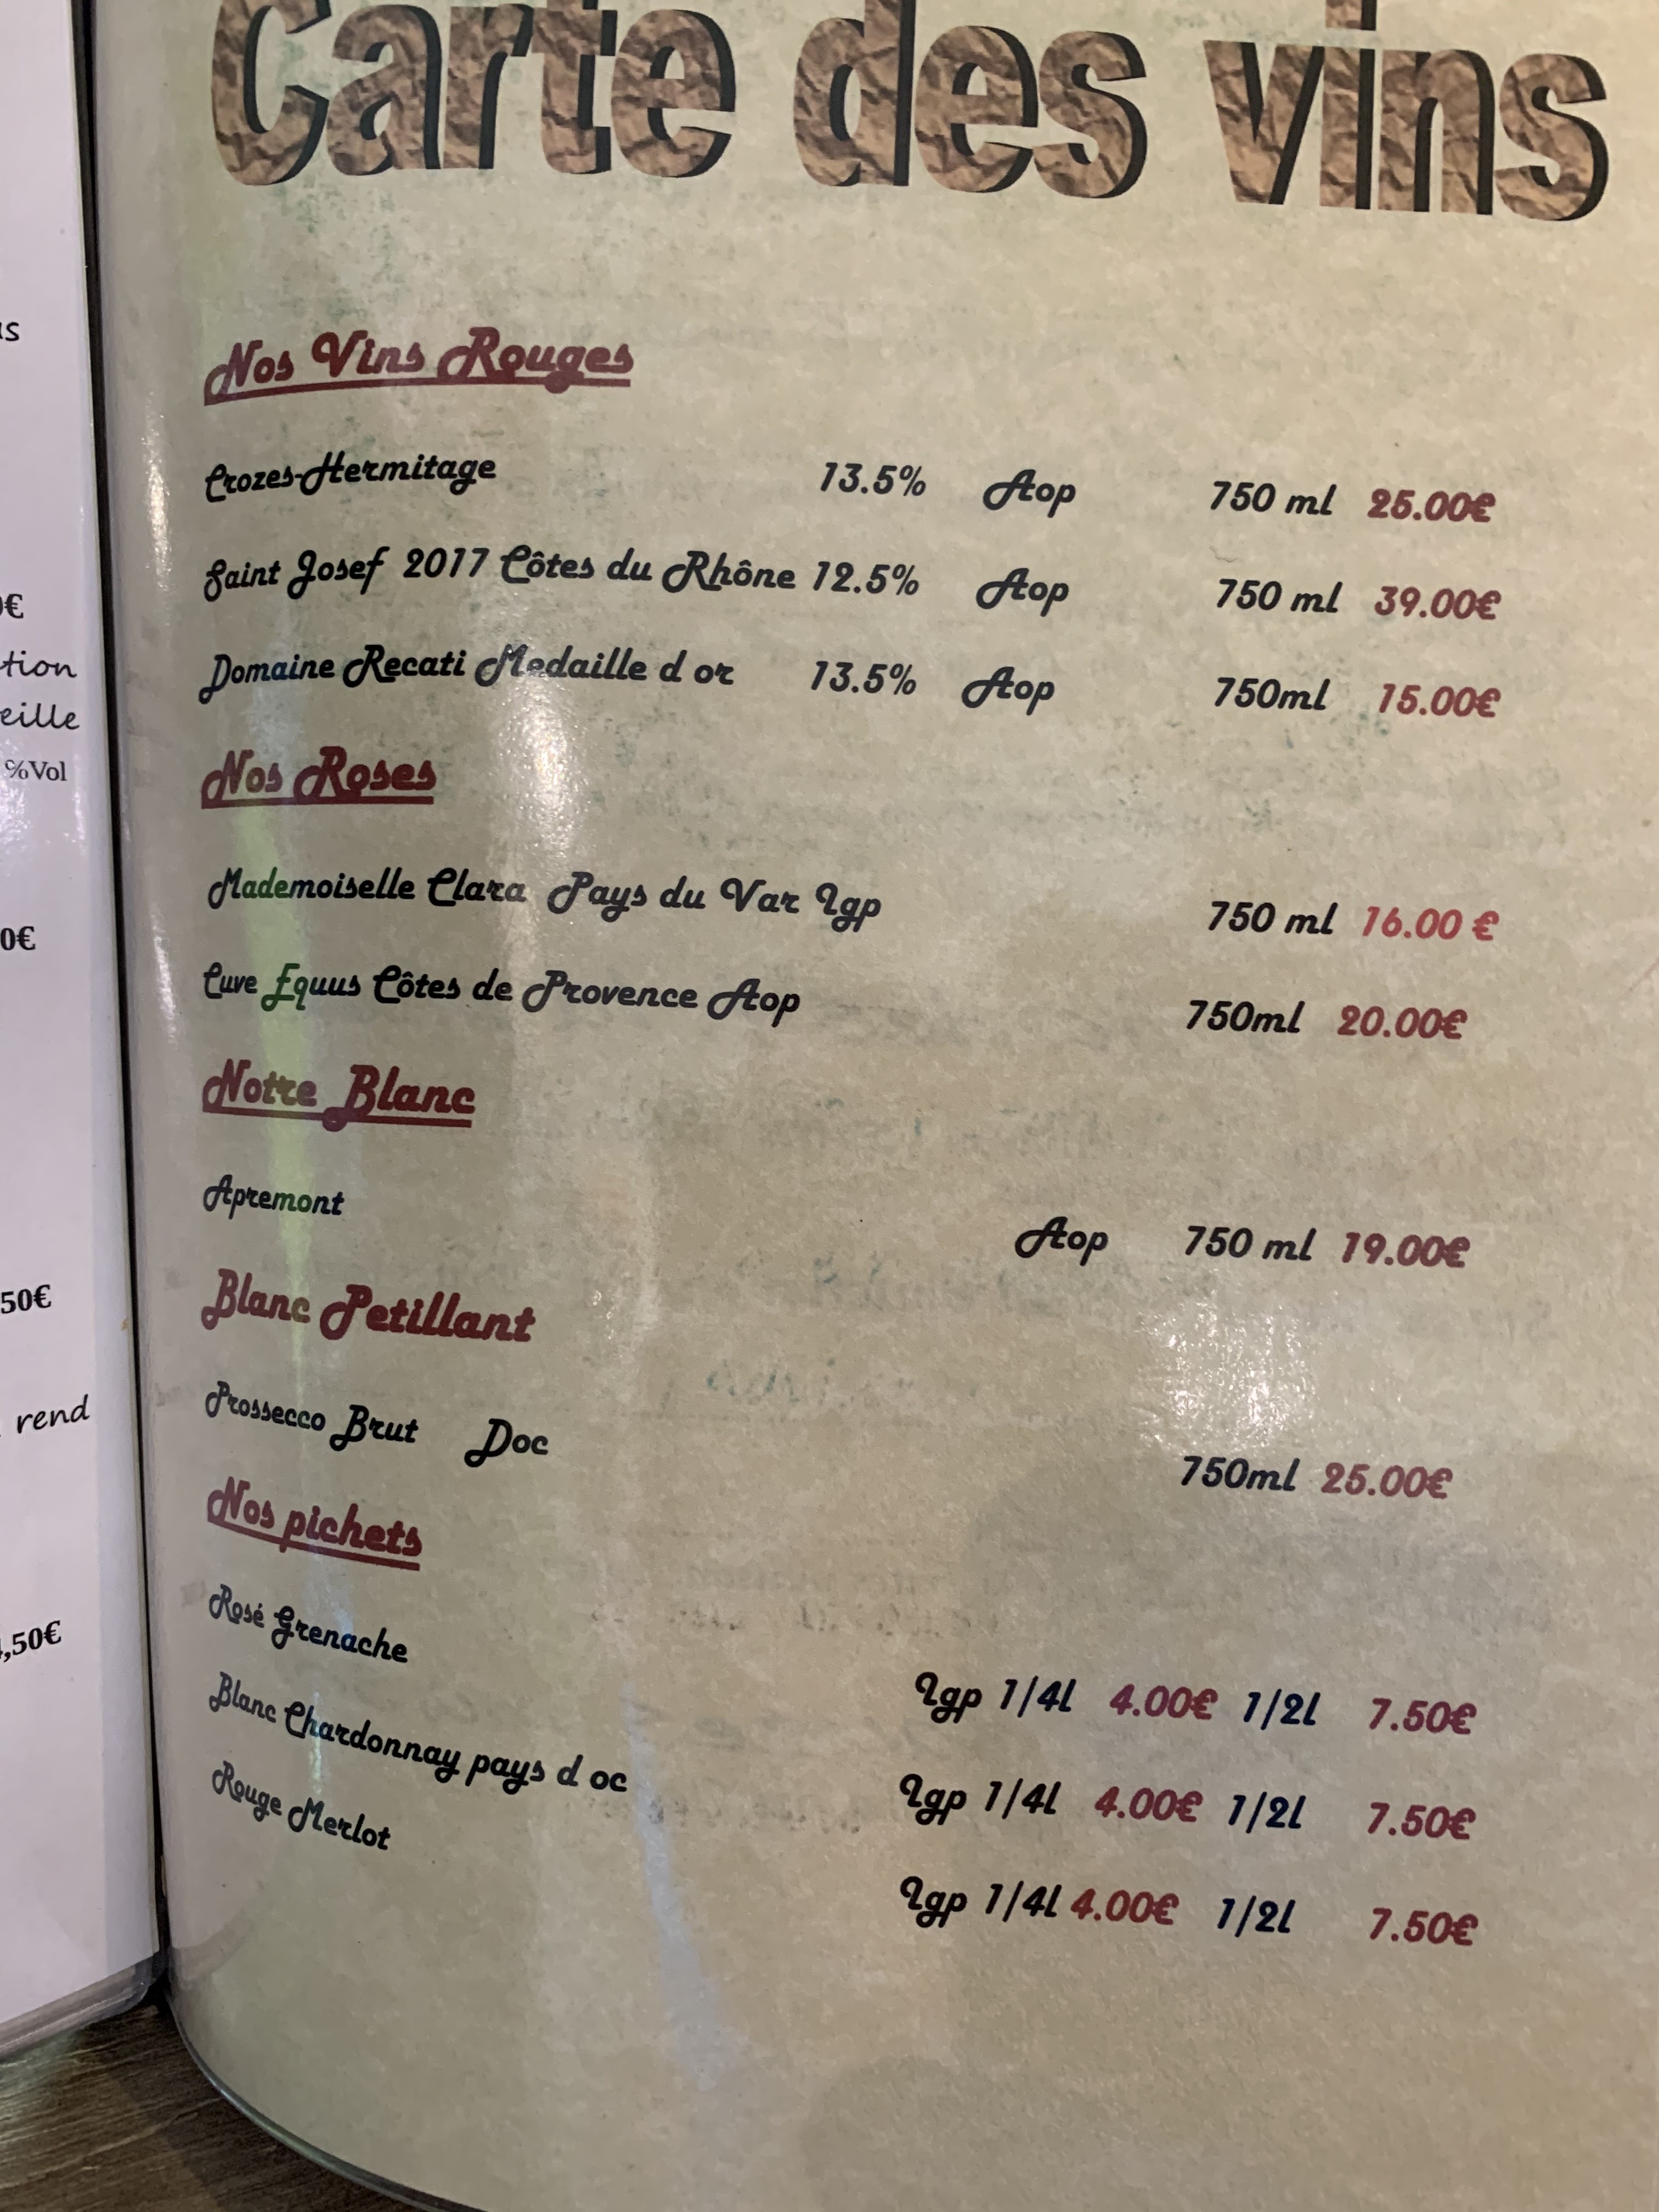 Carte des vins
Nos Vins Rouges
Crozes-Hermitage 13.5% Aop 750 ml 25.00€
Saint Josef 2017 Côtes du Rhône 12.5% Aop 750 ml 39.00€
Domaine Recati Medaille d or 13.5% Aop 750ml 15.00€
Nos Roses
Mademoiselle Clara Pays du Var Igp 750 ml 16.00 €
Cuve Equus Côtes de Provence Aop 750ml 20.00€
Notre Blanc
Apremont Aop 750 ml 19.00€
Blanc Petillant
Prossecco Brut Doc 750ml 25.00€
Nos pichets
Rosé Grenache Igp 1/4l 4.00€ 1/2l 7.50€
Blanc Chardonnay pays d oc Igp 1/4l 4.00€ 1/2l 7.50€
Rouge Merlot Igp 1/4l 4.00€ 1/2l 7.50€
%Vol
rend